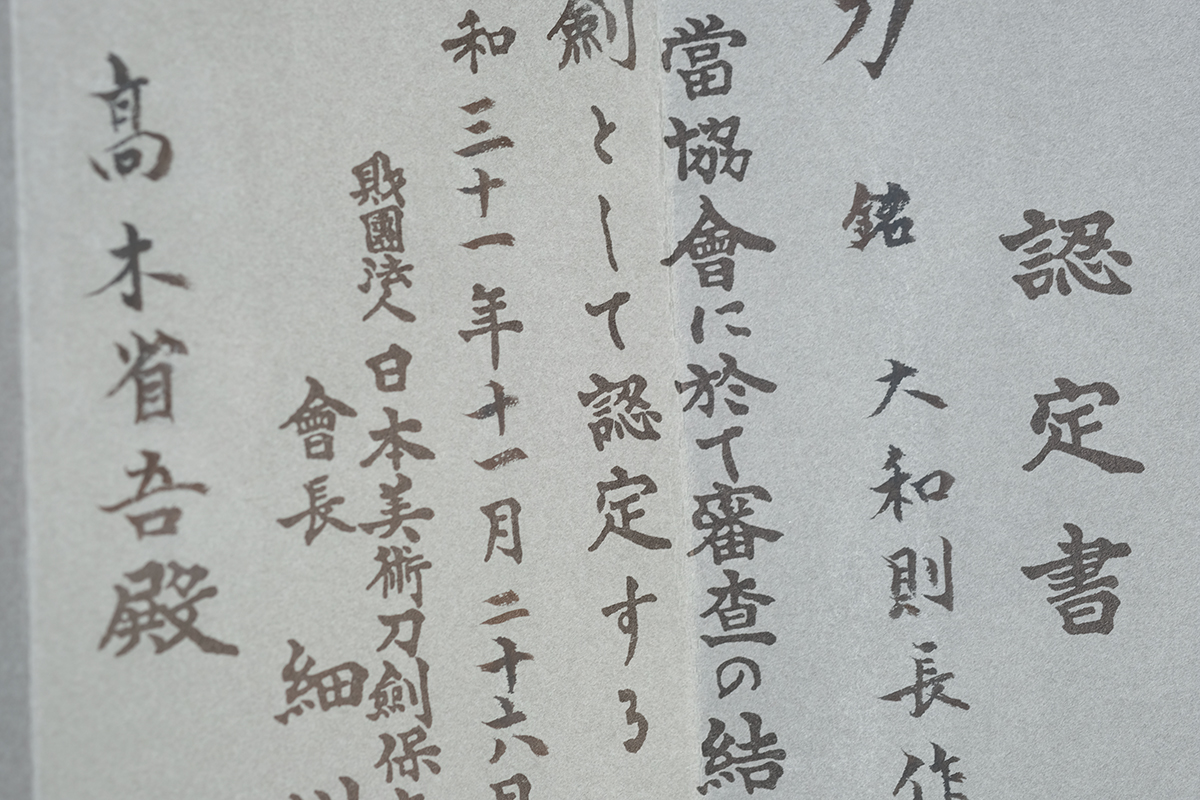 認定書
刀 銘 大和則長作
當協會に於て審査の結
劍として認定する
和三十一年十一月二十六日
財團法人 日本美術刀劍保
會長 細川
高木省吾殿